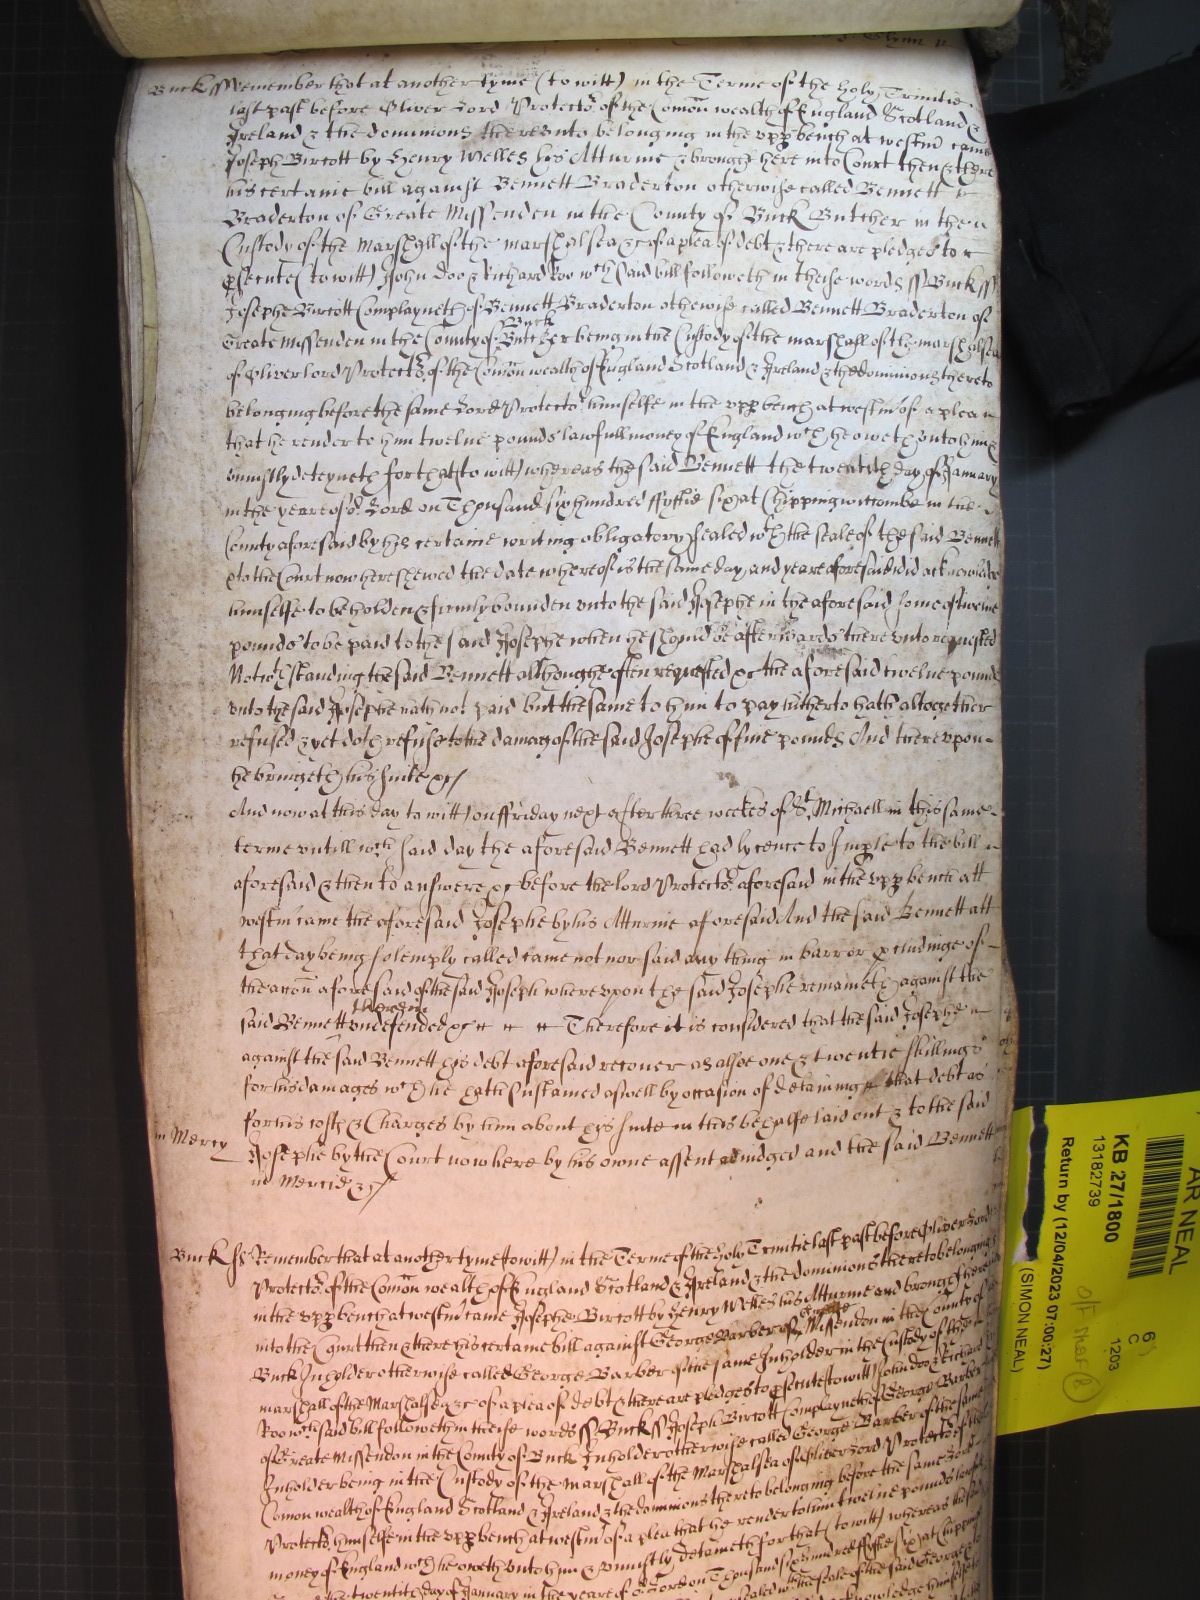 Buck ss Remember that at another tyme (to witt) in the Terme of the holy Trinitie
last past before Oliver Lord Protector of the Comon wealth of England Scotland &
Ireland & the dominions thereunto belonging in the upp bench at westm came
Joseph Bircott by Henry Welles his Atturnie & brought here into Court then & there
his certaine bill against Bennett Braderton otherwise called Bennett
Braderton of Greate Missenden in the County of Buck Butcher in the
Custody of the Marshall of the marshalsea &c of a plea of debt & there are pledges to
psecute (to witt) John Doo & Richard Roo wch said bill followeth in theise words ss Buck ss
Josephe Bircott Complayneth of Bennett Braderton otherwise called Bennett Braderton of
Buck
Greate Missenden in the County of Butcher being in the Custody of the marshall of the marshalsea
of Oliver lord Protector of the Comon wealth of England Scotland & Ireland & the dominions thereto
belonging before the same Lord Protector himselfe in the upp bench at westm of a plea
that he render to him twelve pounds lawfull money of England wch he oweth unto him &
uniustly deteyneth for that (to witt) whereas the said Bennett the twentith day of January
in the yeare of or Lord on Thousand six hundred ffyftie six at Chippingwiccombe in the
County aforesaid by his certaine writing obligatory sealed wth the seale of the said Bennett
& to the Court now here shewed the date whereof is the same day and yeare aforesaid did acknowledge
himselfe to be holden & firmly bounden unto the said Josephe in the aforesaid some of twelve
pounds to be paid to the said Josephe when he should be afterwards there unto requested
Notwthstanding the said Bennett althoughe often requested &c the aforesaid twelve pounds
unto the said Josephe hath not paid but the same to him to pay hitherto hath altogether
refused & yet doth refuse to the damage of the said Josephe of five pounds And thereupon
he bringeth his suite &c
And now at this day to witt) on ffriday next after three weekes of St Michaell in this same
terme untill wch said day the aforesaid Bennett had lycence to Imple to the bill
aforesaid & then to answere &c before the lord Protector aforesaid in the upp bench att
westm came the aforesaid Josephe by his Atturnie aforesaid And the said Bennett att
that day being solemply called came not nor said any thing in barr or pcludinge of
the accon aforesaid of the said Joseph whereupon the said Josephe remaineth against the
therein
said Bennett undefended &c Therefore it is considered that the said Josephe
against the said Bennett his debt aforesaid recover as alsoe one & twentie shillings
for his damages wch he hath sustained aswell by occasion of detaining that debt as
for his costs & Charges by him about his suite in this behalfe laid out & to the said
in Mercy
Josephe by the Court now here by his owne assent adiudged and the said Bennett
in Mercie &c
Buck ss Remember that at another tyme (to witt) in the Terme of the holy Trinitie last past before Oliver Lord
Protector of the Comon wealth of England Scotland & Ireland & the dominions thereto belonging
in the upp bench at westm came Josephe Bircott by Henry Welles his Atturnie and brought here
into the Court then & there his certaine bill against George Barber of Missendon in the County of
Buck Inholder otherwise called George Barber of the same Inholder in the Custody of the
marshall of the Marshalsea &c of a plea of debt & there are pledges to psecute (to witt) John doo & Richard
Roo wch said bill followeth in theise words ss Buck ss Joseph Bircott Complayneth of George Barber
of Greate Missendon in the County of Buck Inholder otherwise called George Barber of the same
Inholder being in the Custody of the marshall of the Marshalsea of Oliver Lord Protector of the
Comon wealth of England Scotland & Ireland & the dominions thereto belonging before the same Lord
Protector himselfe in the upp bench at westm of a plea that he render to him twelve pounds lawfull
money of England wch he oweth unto him & uniustly detaineth for that (to witt) whereas the said
twentith day of January in the yeare of or Lord on Thousand six hundred ffyftie six at Chipping
sealed wth the seale of the said George
knowledge himselfe
AR NEAL
KB 27/1800
13182739
Return by (12/04/2023 07:00:27)
(SIMON NEAL)
C
1203